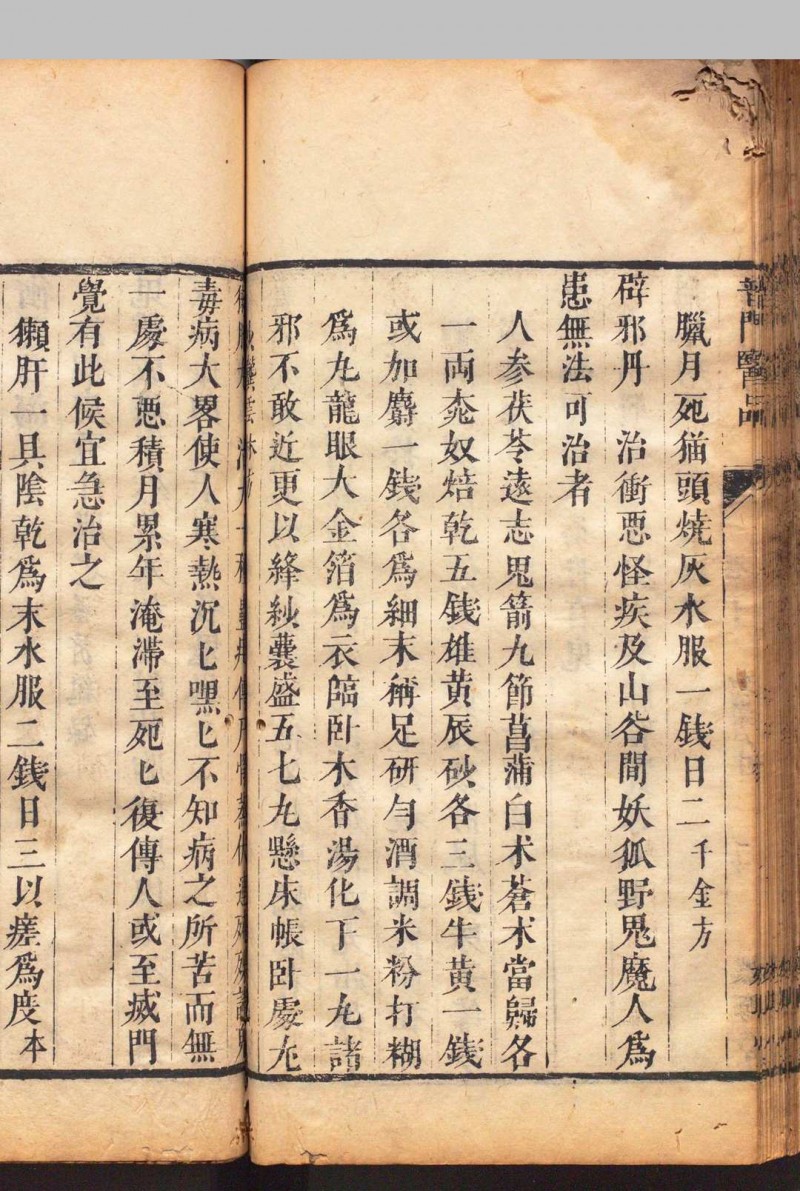 普門醫品
臘月死猫頭燒灰水服一錢日二千金方
辟邪丹　治衝惡怪疾及山谷間妖狐野鬼魔人爲
患無法可治者
人参茯苓遠志鬼箭九節菖蒲白术蒼术當歸各
一兩桃奴焙乾五錢雄黃辰砂各三錢牛黃一錢
或加麝一錢各爲細末稱足研勻酒調米粉打糊
爲丸龍眼大金箔爲衣臨卧木香湯化下一丸諸
邪不敢近更以絳紗囊盛五七丸懸床帳卧處尤
毒病大畧使人寒熱沉匕嘿匕不知病之所苦而無
一處不惡積月累年淹滯至死匕復傳人或至滅門
覺有此候宜急治之
獺肝一具陰乾爲末水服二錢日三以瘥爲度本